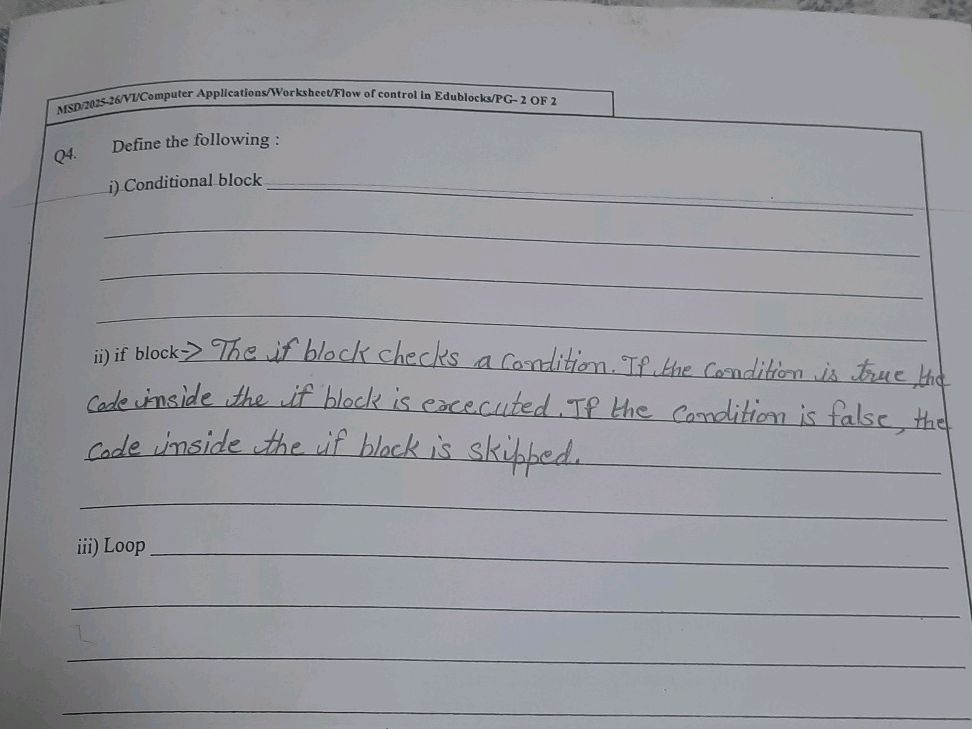 MSD/2025-26/VI/Computer Applications/Worksheet/Flow of control in Edublocks/PG- 2 OF 2
Q4. Define the following :
i) Conditional block
ii) if block-> The if block checks a Condition. If the Condition is true the
Code inside the if block is excecuted. If the Condition is false, the
Code inside the if block is skipped.
iii) Loop